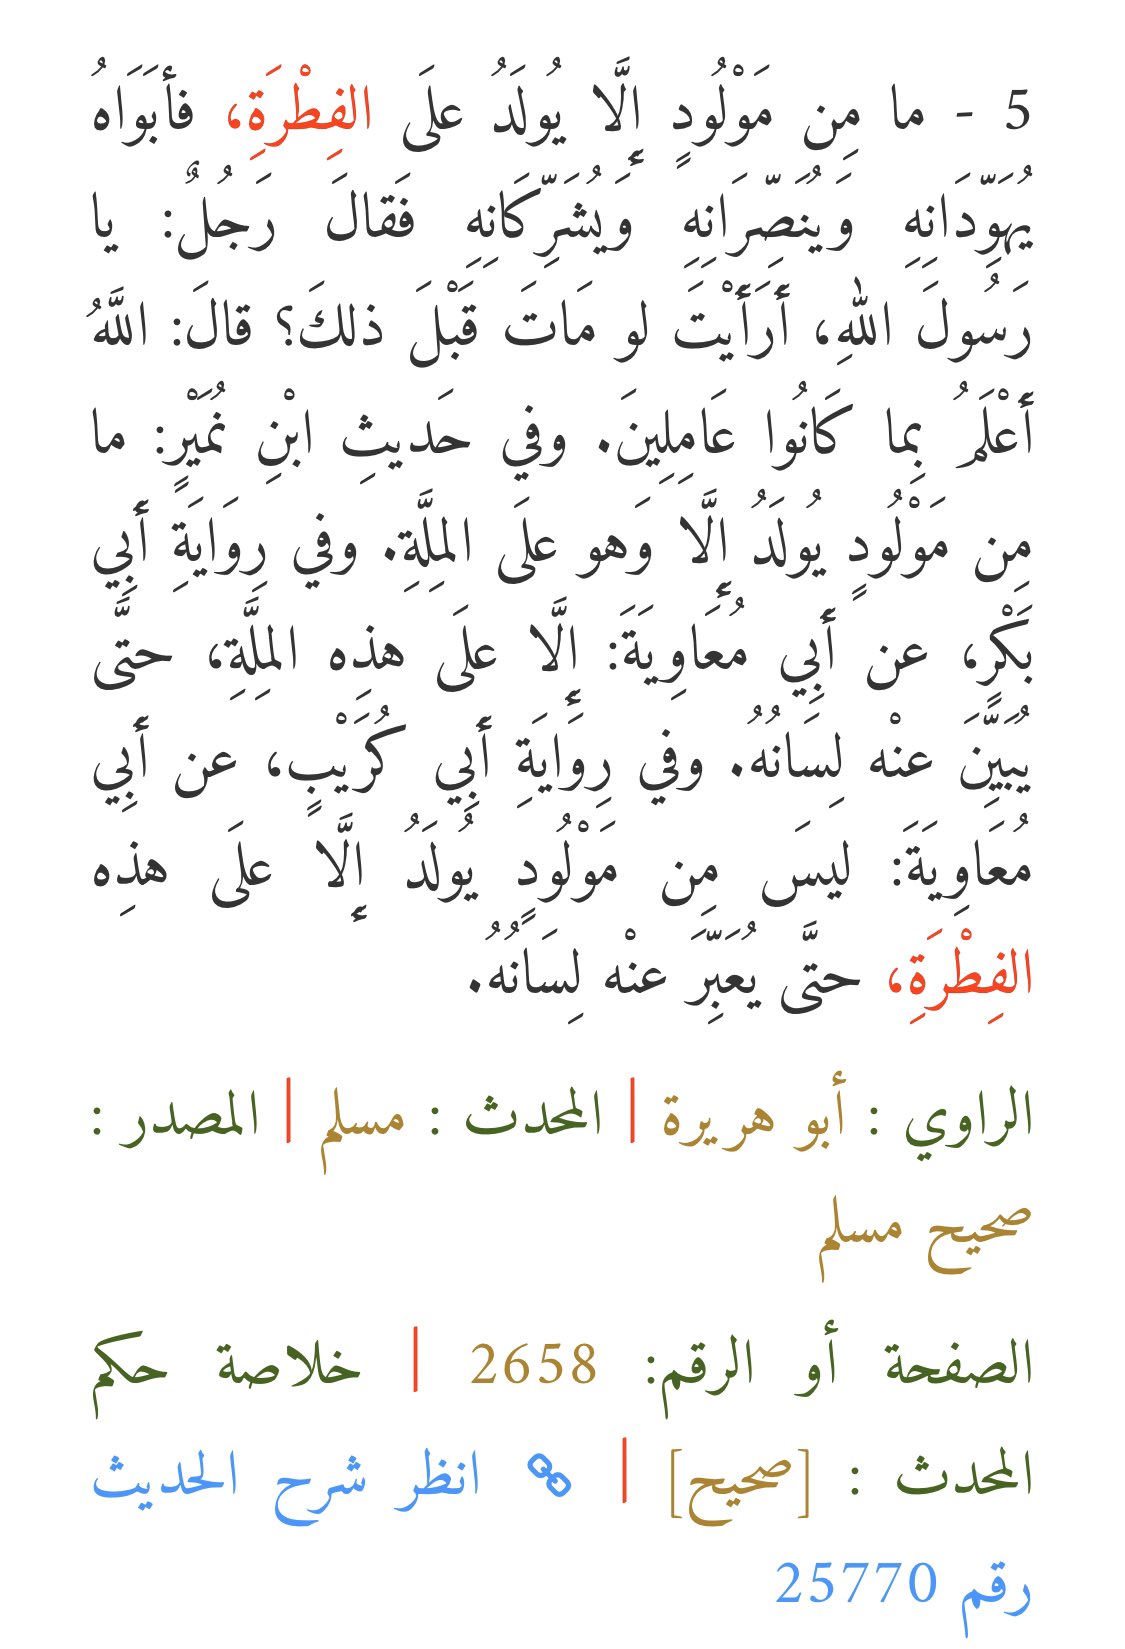 5 - ما مِن مَوْلُودٍ إلَّا يُولَدُ علَى الفِطْرَةِ، فأبَوَاهُ
يُهَوِّدَانِهِ وَيُنَصِّرَانِهِ وَيُشَرِّكَانِهِ فَقالَ رَجُلٌ: يا
رَسُولَ اللهِ، أَرَأَيْتَ لو مَاتَ قَبْلَ ذلكَ؟ قالَ: اللَّهُ
أَعْلَمُ بما كَانُوا عَامِلِينَ. وفي حَديثِ ابْنِ نُمَيْرٍ: ما
مِن مَوْلُودٍ يُولَدُ إلَّا وَهو علَى المِلَّةِ. وفي رِوَايَةِ أَبِي
بَكْرٍ، عن أَبِي مُعَاوِيَةَ: إلَّا علَى هذِه المِلَّةِ، حتَّى
يُبَيِّنَ عنْه لِسَانُهُ. وفي رِوَايَةِ أَبِي كُرَيْبٍ، عن أَبِي
مُعَاوِيَةَ: ليسَ مِن مَوْلُودٍ يُولَدُ إلَّا علَى هذِه
الفِطْرَةِ، حتَّى يُعَبِّرَ عنْه لِسَانُهُ.
الراوي : أبو هريرة | المحدث : مسلم | المصدر :
صحيح مسلم
الصفحة أو الرقم: 2658 | خلاصة حكم
المحدث : [صحيح] | انظر شرح الحديث
رقم 25770